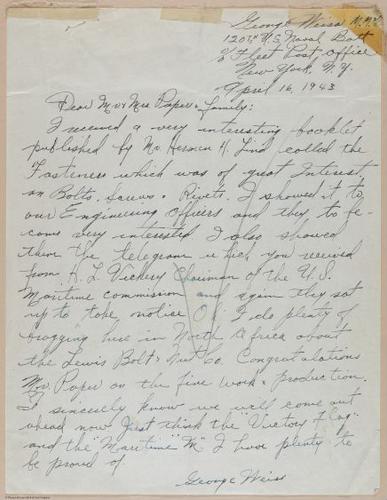 George Weiss
120TH U.S. Naval Batt
% Fleet Post Office
New York, N.Y.
April 16, 1943
Dear Mr & Mrs Paper & Family:
I received a very interesting booklet
published by Mr. Herman H. Lind called the
Fasteners which was of great Interest
on Bolts, Screws & Rivets. I showed it to
our Engineering Officers and they to be-
come very interested I also showed
them the telegram which you received
from H. L. Vickery Chairman of the U.S.
Maritime commission and again they sat
up to take notice Oh I do plenty of
bragging here in North Africa about
the Lewis Bolt & Nut Co. Congratulations
Mr. Paper on the fine work & production.
I sincerely know we will come out
ahead now just think the Victory Flag
and the "Maritime" "M" I have plenty to
be proud of
George Weiss